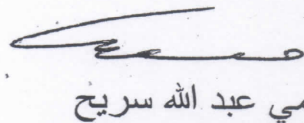 مي عبد الله سريح